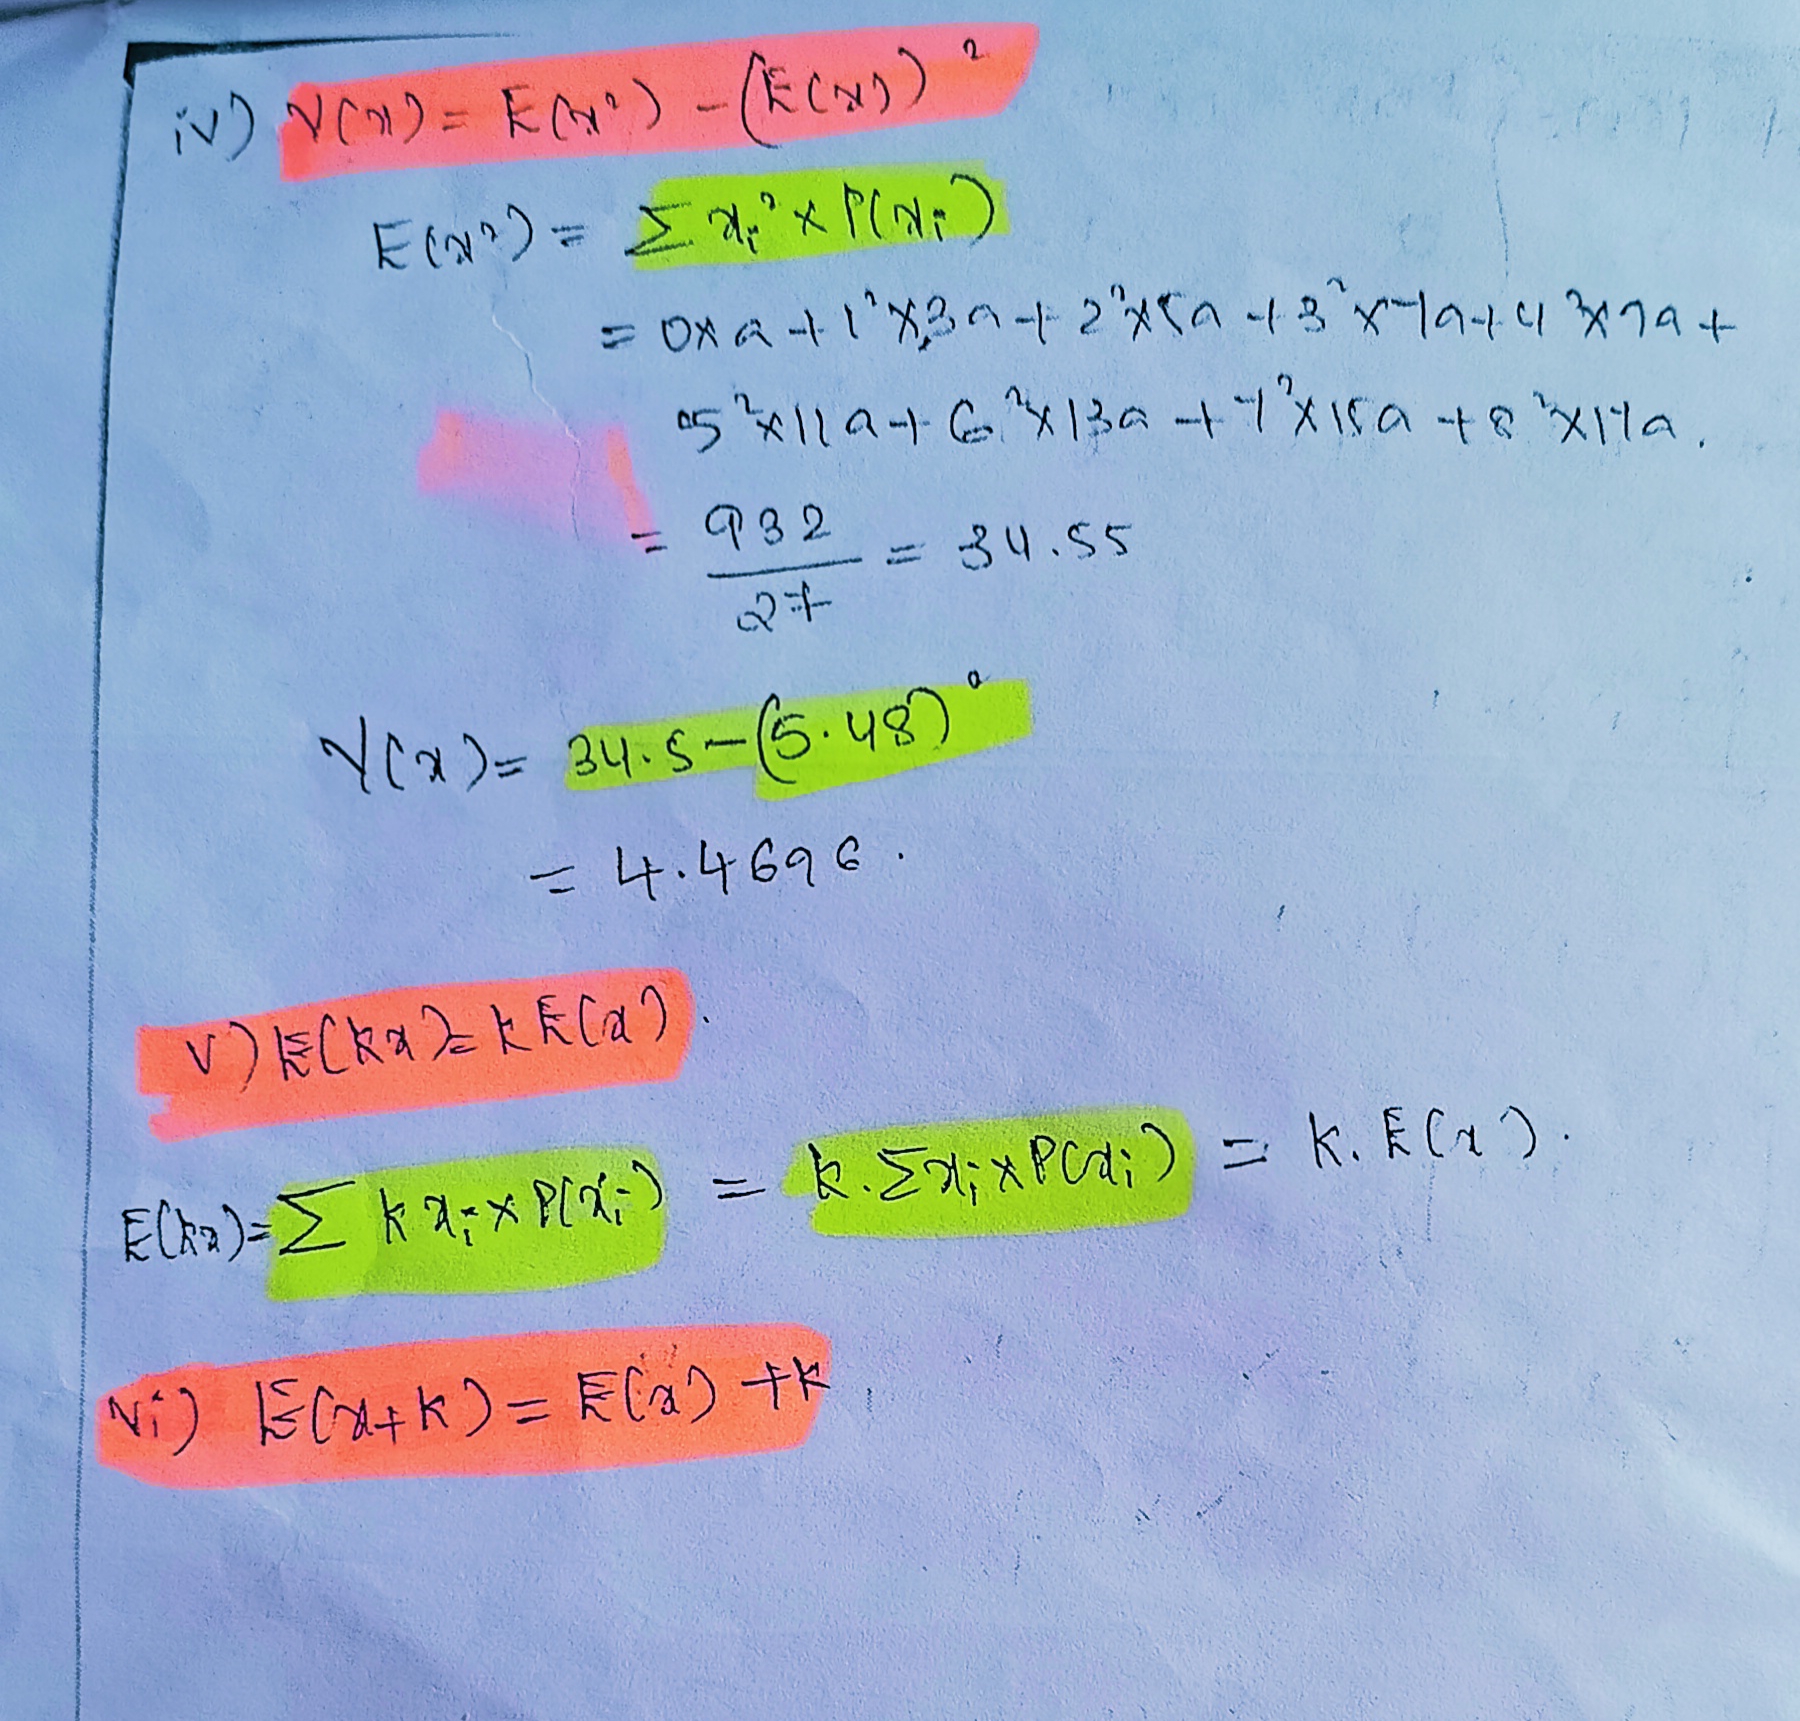 iv) V(x) = E(x²) - (E(x))²
E(x²) = Σ xᵢ² x P(xᵢ)
= 0xa + 1²x3a + 2²x5a + 3²x7a + 4²x9a +
5²x11a + 6²x13a + 7²x15a + 8²x17a.
= 932/27 = 34.55
V(x) = 34.5 - (5.48)²
= 4.4696.
v) E(kx) = k E(x).
E(kx) = Σ k xᵢ x P(xᵢ) = k. Σxᵢ x P(xᵢ) = k. E(x).
vi) E(x+k) = E(x) + k